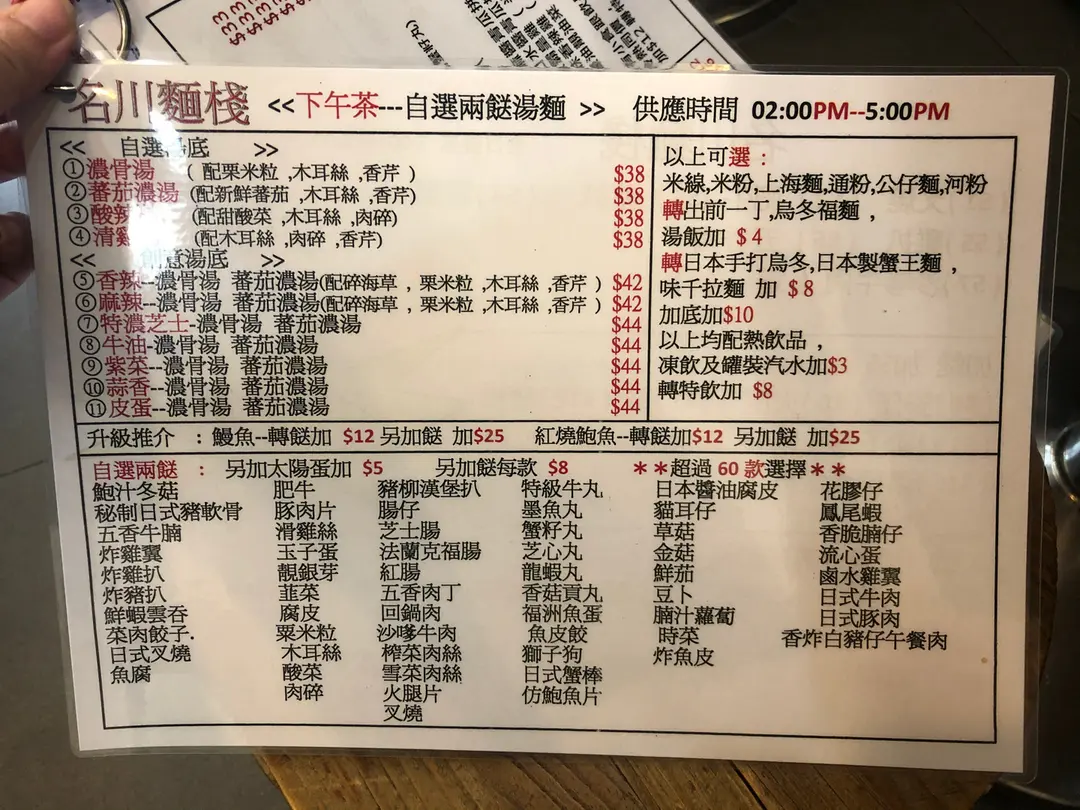 名川麵棧 <<下午茶---自選兩餸湯麵 >> 供應時間 02:00PM--5:00PM
<< 自選湯底 >>
①濃骨湯 ( 配栗米粒 ,木耳絲 ,香芹 ) $38
②蕃茄濃湯 (配新鮮蕃茄 ,木耳絲 ,香芹) $38
③酸辣 (配甜酸菜 ,木耳絲 ,肉碎) $38
④清雞 (配木耳絲 ,肉碎 ,香芹) $38
<< 創意湯底 >>
⑤香辣--濃骨湯 蕃茄濃湯(配碎海草 , 栗米粒 ,木耳絲 ,香芹 ) $42
⑥麻辣--濃骨湯 蕃茄濃湯(配碎海草 , 栗米粒 ,木耳絲 ,香芹 ) $42
⑦特濃芝士-濃骨湯 蕃茄濃湯 $44
⑧牛油-濃骨湯 蕃茄濃湯 $44
⑨紫菜--濃骨湯 蕃茄濃湯 $44
⑩蒜香--濃骨湯 蕃茄濃湯 $44
⑪皮蛋--濃骨湯 蕃茄濃湯 $44
以上可選 :
米線,米粉,上海麵,通粉,公仔麵,河粉
轉出前一丁,烏冬福麵 ,
湯飯加 $4
轉日本手打烏冬,日本製蟹王麵 ,
味千拉麵 加 $8
加底加$10
以上均配熱飲品 ,
凍飲及罐裝汽水加$3
轉特飲加 $8
升級推介 : 鰻魚--轉餸加 $12 另加餸 加$25 紅燒鮑魚--轉餸加$12 另加餸 加$25
自選兩餸 : 另加太陽蛋加 $5 另加餸每款 $8 **超過 60 款選擇**
鮑汁冬菇 肥牛 豬柳漢堡扒 特級牛丸 日本醬油腐皮 花膠仔
秘制日式豬軟骨 豚肉片 腸仔 墨魚丸 貓耳仔 鳳尾蝦
五香牛腩 滑雞絲 芝士腸 蟹籽丸 草菇 香脆腩仔
炸雞翼 玉子蛋 法蘭克福腸 芝心丸 金菇 流心蛋
炸雞扒 靚銀芽 紅腸 龍蝦丸 鮮茄 鹵水雞翼
炸豬扒 韮菜 五香肉丁 香菇貢丸 豆卜 日式牛肉
鮮蝦雲吞 腐皮 回鍋肉 福洲魚蛋 腩汁蘿蔔 日式豚肉
菜肉餃子. 粟米粒 沙嗲牛肉 魚皮餃 時菜 香炸白豬仔午餐肉
日式叉燒 木耳絲 榨菜肉絲 獅子狗 炸魚皮
魚腐 酸菜 雪菜肉絲 日式蟹棒
肉碎 火腿片 仿鮑魚片
叉燒